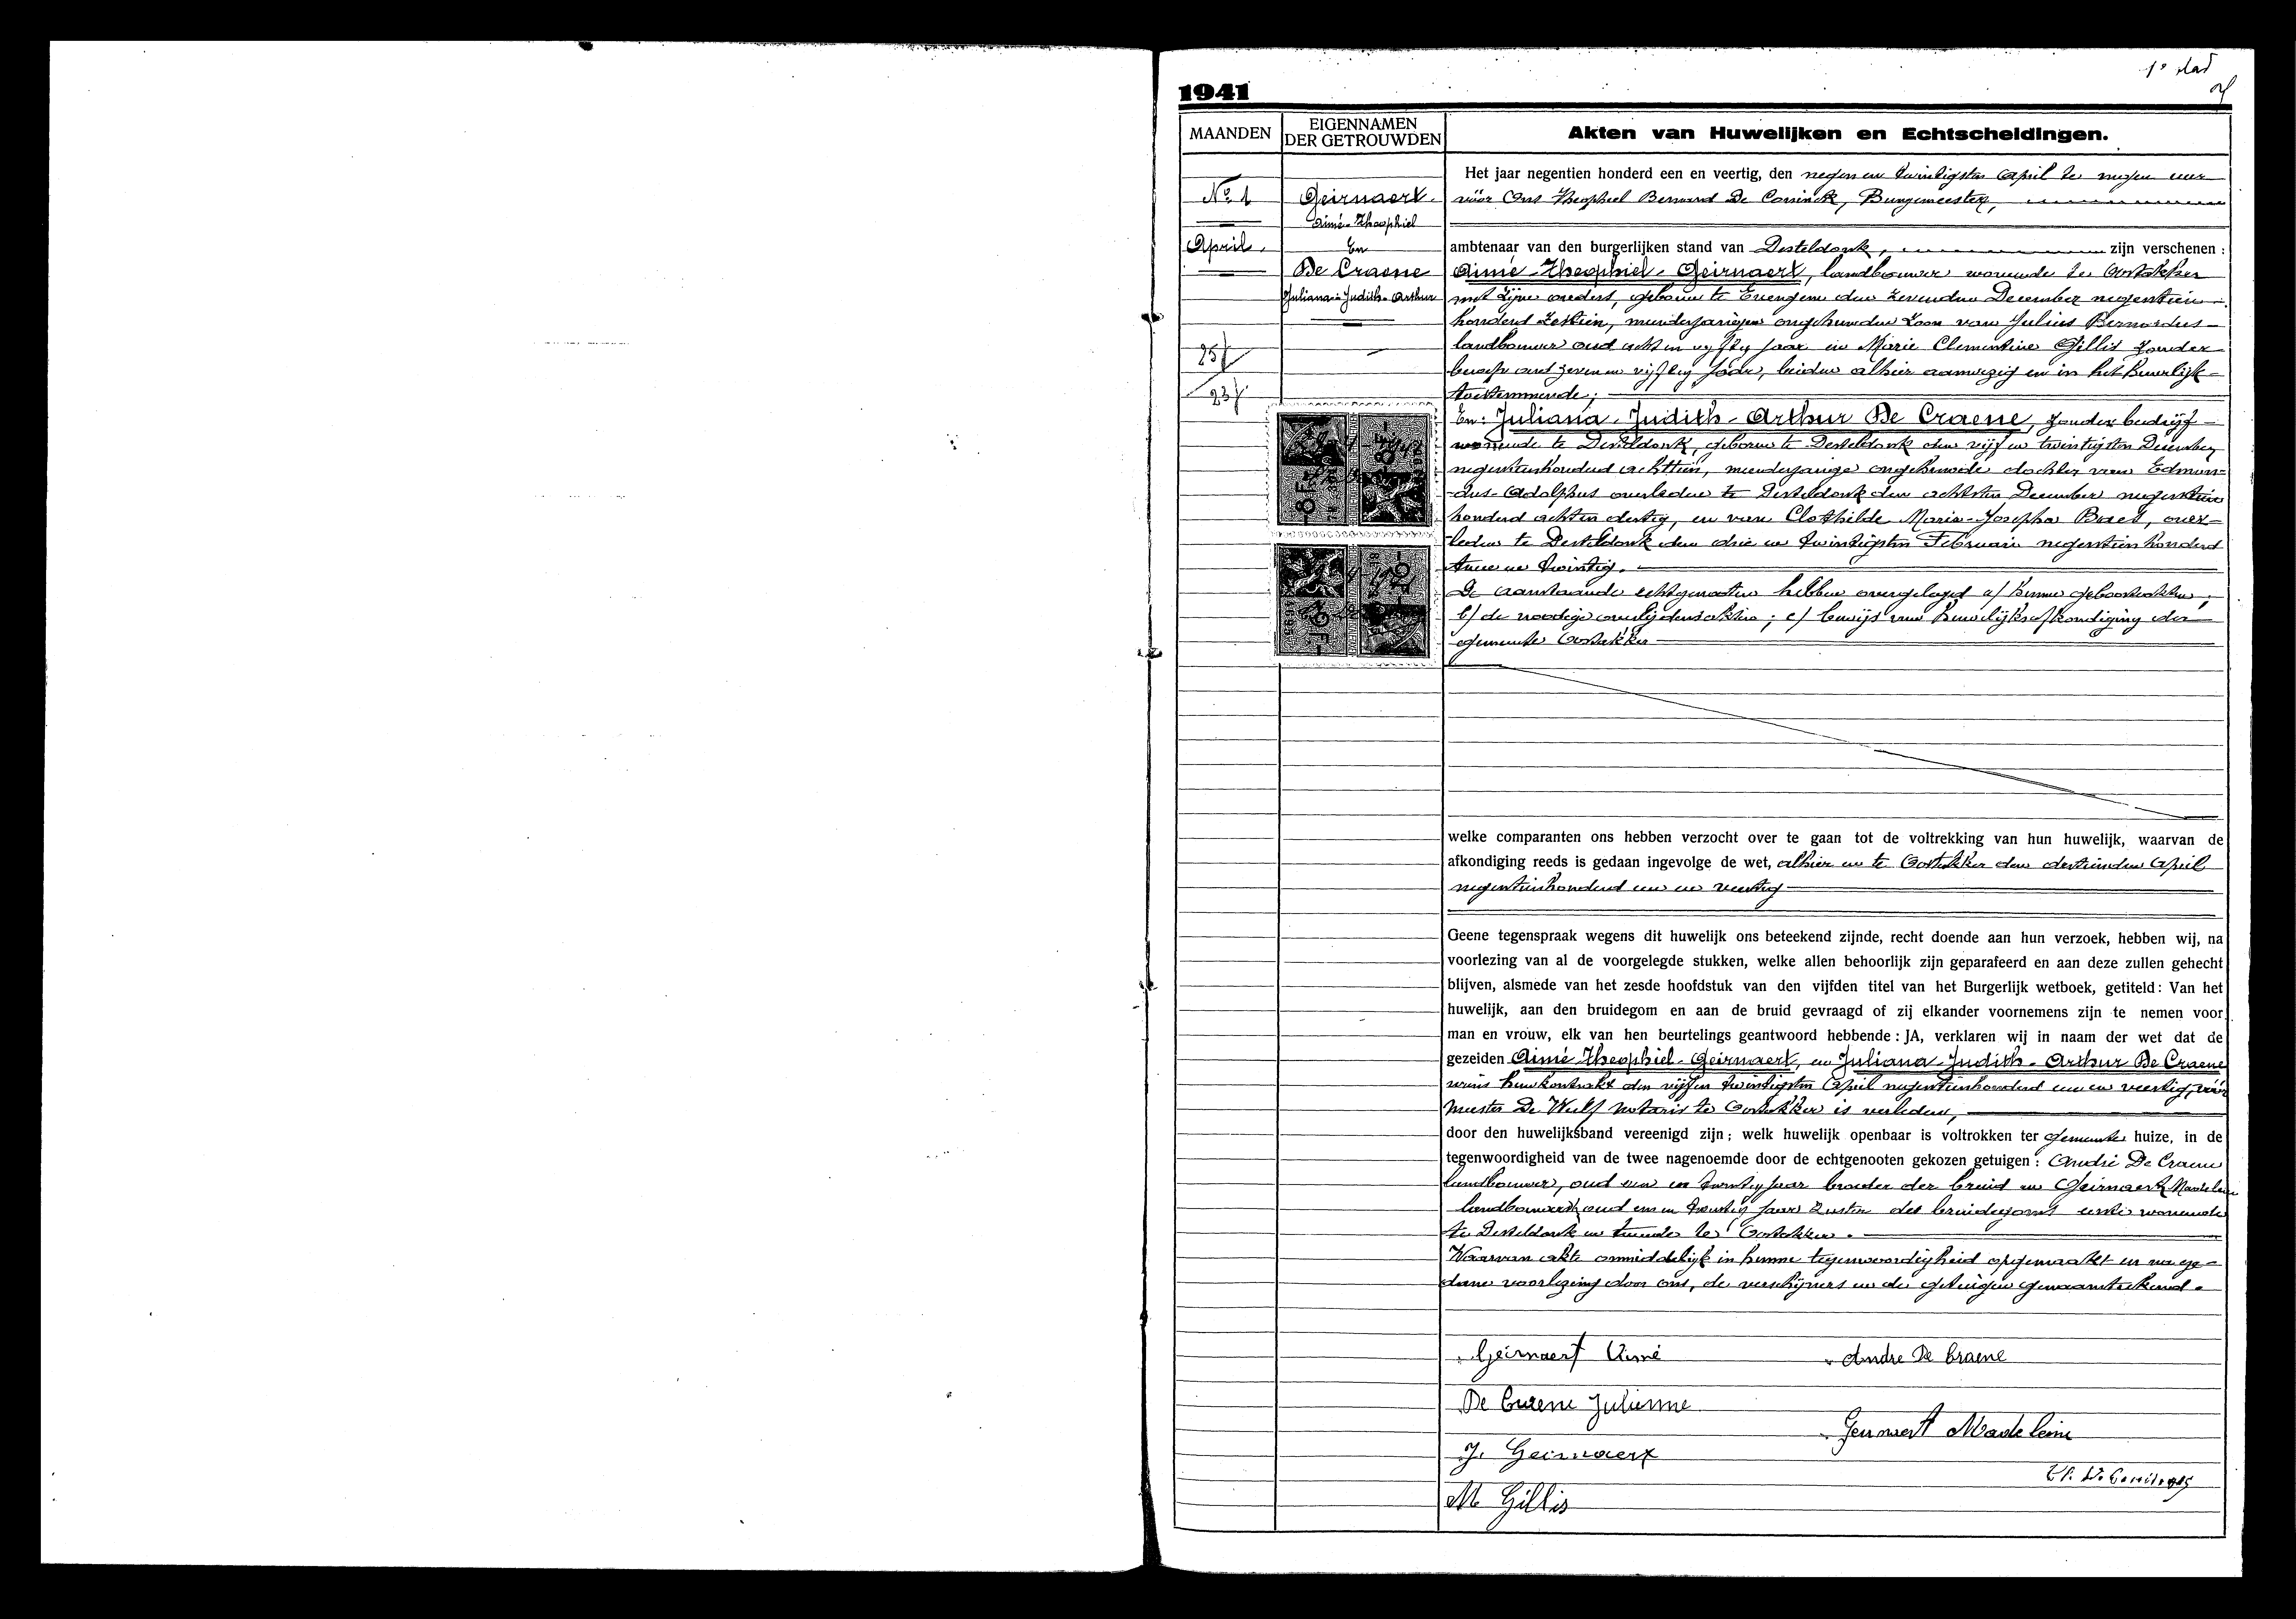 1° blad
1941
MAANDEN
EIGENNAMEN DER GETROUWDEN
Akten van Huwelijken en Echtscheidingen.
N° 1
April.
25 j
23 j
Geirnaert.
Aimé-Theophiel
En
De Craene
Juliana-Judith-Arthur
Het jaar negentien honderd een en veertig, den negen en twintigsten April te negen uur
vóór Ons Theophiel Bernard De Coninck, Burgemeester,
ambtenaar van den burgerlijken stand van Desteldonk, zijn verschenen :
Aimé-Theophiel-Geirnaert, landbouwer wonende te Oostakker
met zijne ouders, geboren te Evergem den zevenden December negentien-
honderd zestien, meerderjarigen ongehuwden zoon van Julius Bernardus
landbouwer oud acht en vijftig jaar en Marie Clementine Gillis zonder
beroep oud zeven en vijftig jaar, beiden alhier aanwezig en in het huwelijk
toestemmende;
En: Juliana-Judith-Arthur De Craene, zonder bedrijf
wonende te Desteldonk, geboren te Desteldonk den vijf en twintigsten December
negentienhonderd achttien, meerderjarige ongehuwde dochter van Edmon-
dus-Adolphus overleden te Desteldonk den achtsten December negentien
honderd acht en dertig, en van Clothilde Maria-Josepha Baes, over-
leden te Desteldonk den drie en twintigsten Februari negentien honderd
twee en twintig.
De aanstaande echtgenooten hebben overgelegd a/ hunne geboorteakten;
b/ de noodige overlijdensakten; c/ bewijs van huwelijksafkondiging der
gemeente Oostakker
welke comparanten ons hebben verzocht over te gaan tot de voltrekking van hun huwelijk, waarvan de
afkondiging reeds is gedaan ingevolge de wet, alhier en te Oostakker den dertienden April
negentienhonderd een en veertig
Geene tegenspraak wegens dit huwelijk ons beteekend zijnde, recht doende aan hun verzoek, hebben wij, na
voorlezing van al de voorgelegde stukken, welke allen behoorlijk zijn geparafeerd en aan deze zullen gehecht
blijven, alsmede van het zesde hoofdstuk van den vijfden titel van het Burgerlijk wetboek, getiteld : Van het
huwelijk, aan den bruidegom en aan de bruid gevraagd of zij elkander voornemens zijn te nemen voor
man en vrouw, elk van hen beurtelings geantwoord hebbende : JA, verklaren wij in naam der wet dat de
gezeiden Aimé Theophiel-Geirnaert, en Juliana-Judith-Arthur De Craene
wiens huwkontrakt den vijf en twintigsten April negentienhonderd een en veertig, vóór
meester De Wulf notaris te Oostakker is verleden,
door den huwelijksband vereenigd zijn ; welk huwelijk openbaar is voltrokken ter gemeente huize, in de
tegenwoordigheid van de twee nagenoemde door de echtgenooten gekozen getuigen : André De Craene
landbouwer, oud een en twintig jaar broeder der bruid en Geirnaert Madeleine
landbouwerst oud een en twintig jaar zuster des bruidegoms eerste wonende
te Desteldonk en tweede te Oostakker.
Waarvan akte onmiddelijk in hunne tegenwoordigheid opgemaakt en na ge-
dane voorlezing door ons, de verschijners en de getuigen genaamteekend.
Geirnaert Aimé
Andre De Craene
De Craene Julienne
Geirnaert Madeleine
J. Geirnaert
M Gillis